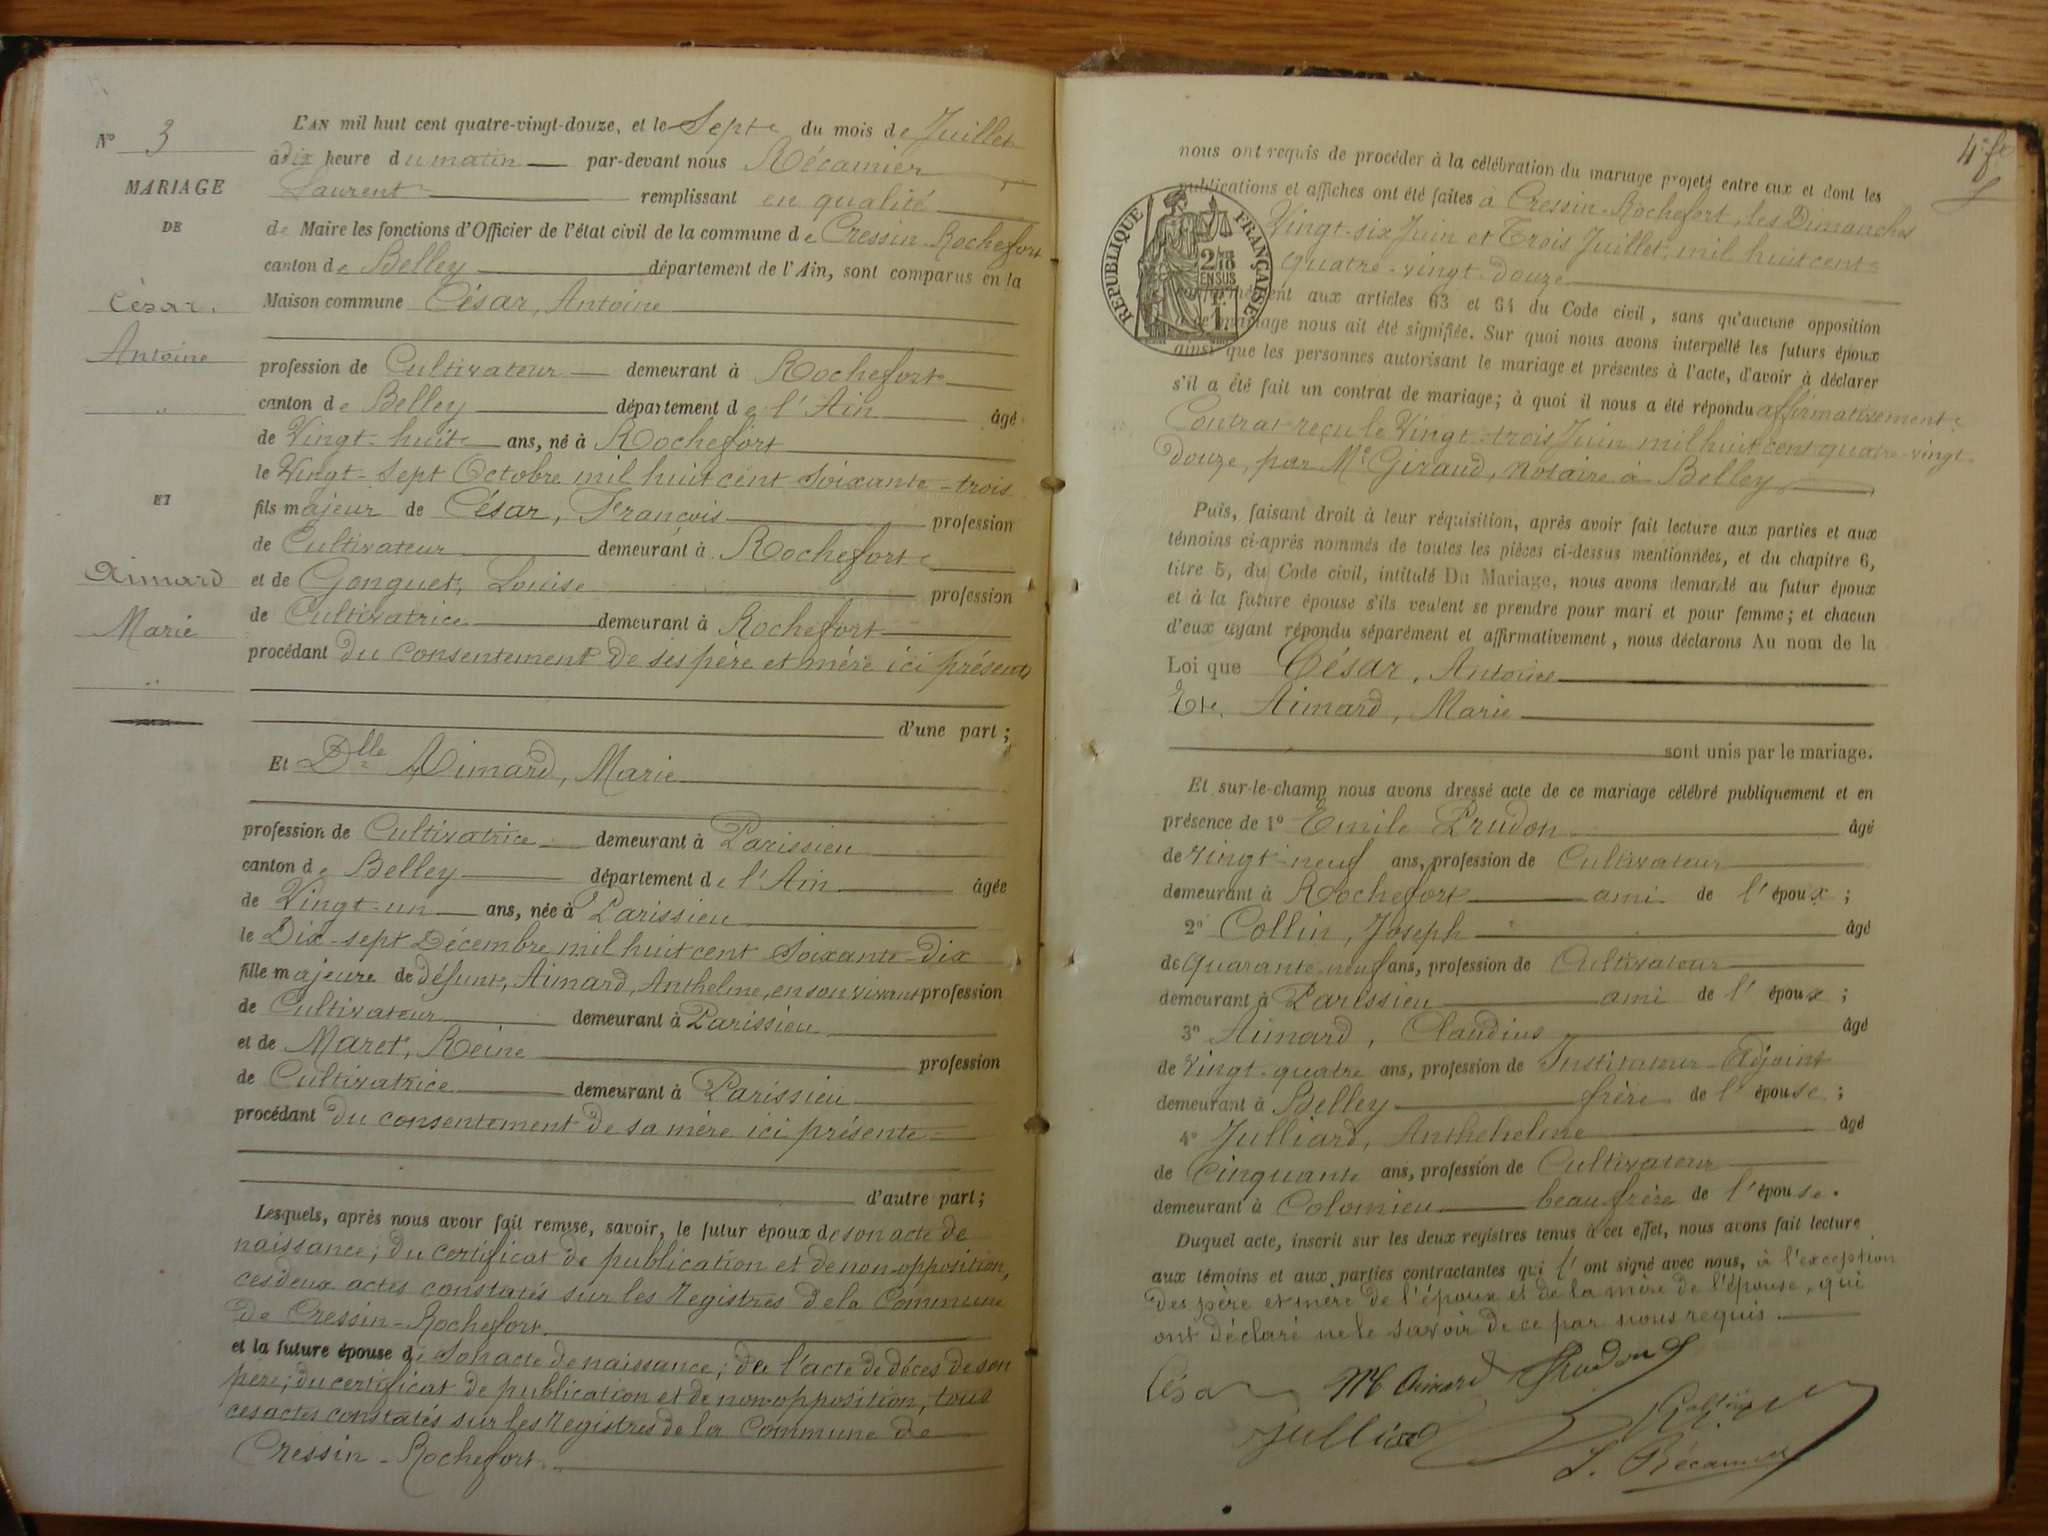 N° 3
MARIAGE
DE
César,
Antoine
"
ET
Aimard
Marie
"
L'AN mil huit cent quatre-vingt-douze, et le Sept du mois de Juillet
à dix heure du matin par-devant nous Récamier
Laurent remplissant en qualité
de Maire les fonctions d'Officier de l'état civil de la commune de Cressin-Rochefort
canton de Belley département de l'Ain, sont comparus en la
Maison commune César, Antoine
profession de Cultivateur demeurant à Rochefort
canton de Belley département de l'Ain âgé
de Vingt-huit ans, né à Rochefort
le Vingt-Sept Octobre mil huit cent soixante-trois
fils majeur de César, François profession
de Cultivateur demeurant à Rochefort
et de Gonguet, Louise profession
de Cultivatrice demeurant à Rochefort
procédant du consentement de ses père et mère ici présents
d'une part;
Et Dlle Aimard, Marie
profession de Cultivatrice demeurant à Parissieu
canton de Belley département de l'Ain âgée
de Vingt-un ans, née à Parissieu
le Dix-sept Décembre mil huit cent Soixante-Dix
fille majeure de défunt, Aimard, Anthelme, en son vivant profession
de Cultivateur demeurant à Parissieu
et de Maret, Reine profession
de Cultivatrice demeurant à Parissieu
procédant du consentement de sa mère ici présente
d'autre part;
Lesquels, après nous avoir fait remise, savoir, le futur époux de son acte de
naissance; du certificat de publication et de non-opposition,
ces deux actes constatés sur les registres de la Commune
de Cressin-Rochefort
et la future épouse de son acte de naissance; de l'acte de décès de son
père; du certificat de publication et de non opposition, tous
ces actes constatés sur les registres de la Commune de
Cressin-Rochefort
4e fo
nous ont requis de procéder à la célébration du mariage projeté entre eux et dont les
publications et affiches ont été faites à Cressin-Rochefort, les Dimanches
Vingt-six Juin et Trois Juillet, mil huit cent
quatre-vingt-douze
conformément aux articles 63 et 64 du Code civil, sans qu'aucune opposition
à ce mariage nous ait été signifiée. Sur quoi nous avons interpellé les futurs époux
ainsi que les personnes autorisant le mariage et présentes à l'acte, d'avoir à déclarer
s'il a été fait un contrat de mariage; à quoi il nous a été répondu affirmativement
Contrat reçu le Vingt-trois Juin mil huit cent quatre-vingt-
douze, par Me Giraud, notaire à Belley
RÉPUBLIQUE FRANÇAISE
2/10
EN SUS
1F.
Puis, faisant droit à leur réquisition, après avoir fait lecture aux parties et aux
témoins ci-après nommés de toutes les pièces ci-dessus mentionnées, et du chapitre 6,
titre 5, du Code civil, intitulé Du Mariage, nous avons demandé au futur époux
et à la future épouse s'ils veulent se prendre pour mari et pour femme; et chacun
d'eux ayant répondu séparément et affirmativement, nous déclarons Au nom de la
Loi que César, Antoine
Et Aimard, Marie
sont unis par le mariage.
Et sur-le-champ nous avons dressé acte de ce mariage célébré publiquement et en
présence de 1° Emile Prudon âgé
de vingt-neuf ans, profession de Cultivateur
demeurant à Rochefort ami de l'époux;
2° Collin, Joseph âgé
de quarante-neuf ans, profession de Cultivateur
demeurant à Parissieu ami de l'époux;
3° Aimard, Claudius âgé
de vingt-quatre ans, profession de Instituteur-Adjoint
demeurant à Belley frère de l'épouse;
4° Julliard, Anthehelme âgé
de Cinquante ans, profession de Cultivateur
demeurant à Colomieu beau frère de l'épouse.
Duquel acte, inscrit sur les deux registres tenus à cet effet, nous avons fait lecture
aux témoins et aux parties contractantes qui l'ont signé avec nous, à l'exception
des père et mère de l'époux et de la mère de l'épouse, qui
ont déclaré ne le savoir de ce par nous requis.
César M Aimard Prudon
Julliard Collin
L. Récamier